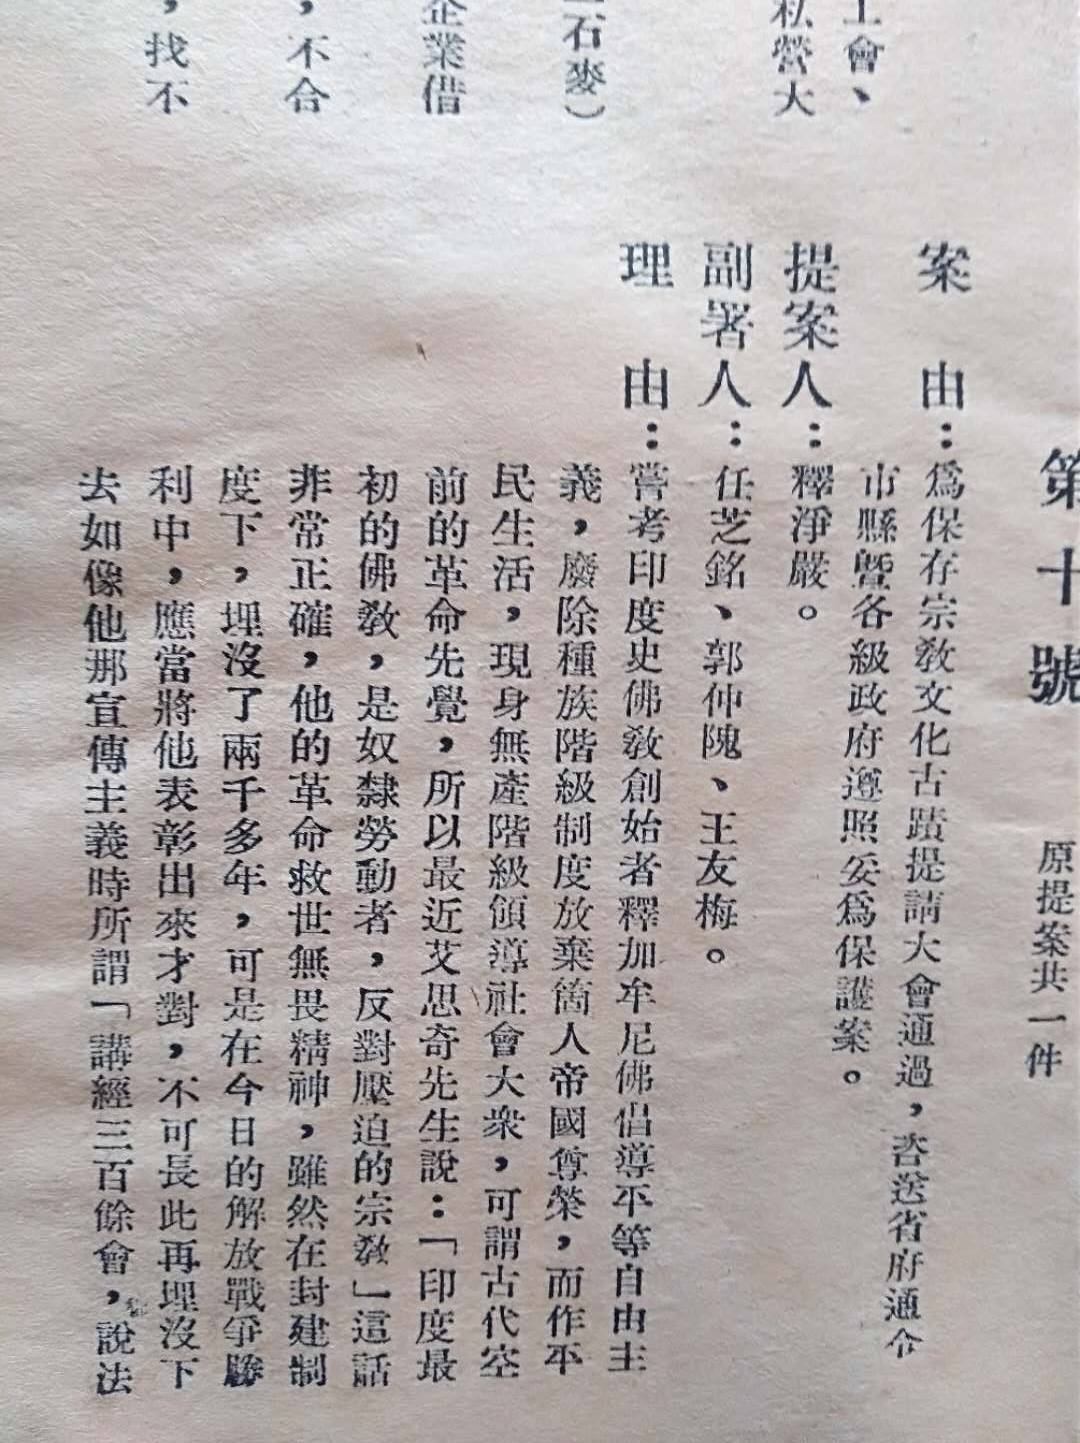 工會、
私營大
石麥）
企業借
，不合
，找不
第十號 原提案共一件
案由：爲保存宗教文化古蹟提請大會通過，咨送省府通令
市縣暨各級政府遵照妥爲保護案。
提案人：釋淨嚴。
副署人：任芝銘、郭仲隗、王友梅。
理由：嘗考印度史佛教創始者釋加牟尼佛倡導平等自由主
義，廢除種族階級制度放棄箇人帝國尊榮，而作平
民生活，現身無產階級領導社會大衆，可謂古代空
前的革命先覺，所以最近艾思奇先生說：「印度最
初的佛教，是奴隸勞動者，反對壓迫的宗教」這話
非常正確，他的革命救世無畏精神，雖然在封建制
度下，埋沒了兩千多年，可是在今日的解放戰爭勝
利中，應當將他表彰出來才對，不可長此再埋沒下
去如像他那宣傳主義時所謂「講經三百餘會，說法